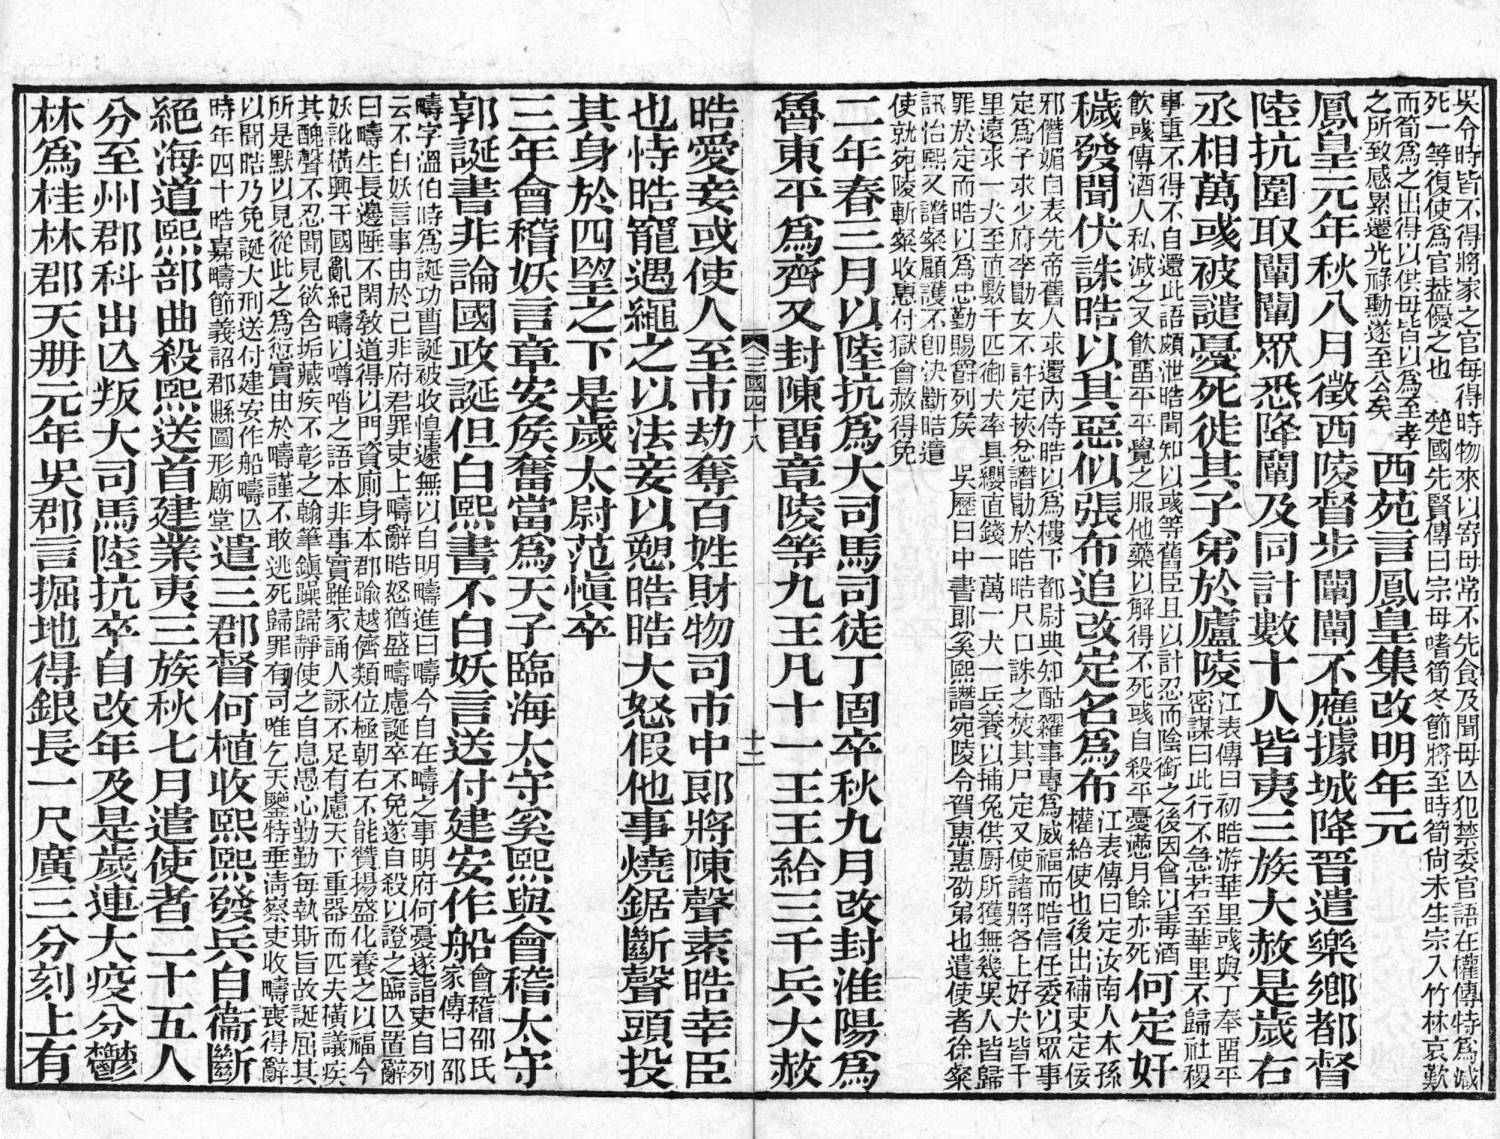 吳令時皆不得將家之官每得時物來以寄母常不先食及聞母亾犯禁委官語在權傳特爲減
死一等復使爲官蓋優之也　楚國先賢傳曰宗母嗜筍冬節將至時筍尚未生宗入竹林哀歎
而筍爲之出得以供母皆以爲至孝
之所致感累遷光祿勳遂至公矣
西苑言鳳皇集改明年元
鳳皇元年秋八月徵西陵督步闡闡不應據城降晉遣樂鄉都督
陸抗圍取闡闡眾悉降闡及同計數十人皆夷三族大赦是歲右
丞相萬彧被譴憂死徙其子弟於廬陵
江表傳曰初晧游華里彧與丁奉畱平
密謀曰此行不急若至華里不歸社稷
事重不得不自還此語頗泄晧聞知以彧等舊臣且以計忍而陰銜之後因會以毒酒
飮彧傳酒人私減之又飮畱平平覺之服他藥以解得不死彧自殺平憂懣月餘亦死
何定奸
穢發聞伏誅晧以其惡似張布追改定名爲布
江表傳曰定汝南人本孫
權給使也後出補吏定佞
邪僭媚自表先帝舊人求還內侍晧以爲樓下都尉典知酤糴事專爲威福而晧信任委以眾事
定爲子求少府李勖女不許定挾忿譖勖於晧晧尺口誅之焚其尸定又使諸將各上好犬皆千
里遠求一犬至直數千匹御犬率具纓直錢一萬一犬一兵養以捕兔供廚所獲無幾吳人皆歸
罪於定而晧以爲忠勤賜爵列矦　吳歷曰中書郞奚熙譖宛陵令賀惠惠劭弟也遣使者徐粲
訊治熙又譖粲顧護不卽決斷晧遣
使就宛陵斬粲收惠付獄會赦得免
二年春三月以陸抗爲大司馬司徒丁固卒秋九月改封淮陽爲
魯東平爲齊又封陳畱章陵等九王凡十一王王給三千兵大赦
三國四十八
十二
晧愛妾或使人至市劫奪百姓財物司市中郞將陳聲素晧幸臣
也恃晧寵遇繩之以法妾以愬晧晧大怒假他事燒鋸斷聲頭投
其身於四望之下是歲太尉范愼卒
三年會稽妖言章安矦奮當爲天子臨海太守奚熙與會稽太守
郭誕書非論國政誕但白熙書不白妖言送付建安作船
會稽邵氏
家傳曰邵
疇字溫伯時爲誕功曹誕被收惶遽無以自明疇進曰疇今自在疇之事明府何憂遂詣吏自列
云不白妖言事由於己非府君罪吏上疇辭晧怒猶盛疇慮誕卒不免遂自殺以證之臨亾置辭
曰疇生長邊陲不閑敎道得以門資廁身本郡踰越儕類位極朝右不能贊揚盛化養之以福今
妖訛橫興干國亂紀疇以噂㗳之語本非事實雖家誦人詠不足有慮天下重器而匹夫橫議疾
其醜聲不忍聞見欲含垢藏疾不彰之翰筆鎭躁歸靜使之自息愚心勤勤每執斯旨故誕屈其
所是默以見從此之爲愆實由於疇謹不敢逃死歸罪有司唯乞天鑒特垂淸察吏收疇喪得辭
以聞晧乃免誕大刑送付建安作船疇亾
時年四十晧嘉疇節義詔郡縣圖形廟堂
遣三郡督何植收熙熙發兵自衞斷
絕海道熙部曲殺熙送首建業夷三族秋七月遣使者二十五人
分至州郡科出亾叛大司馬陸抗卒自改年及是歲連大疫分鬱
林爲桂林郡天冊元年吳郡言掘地得銀長一尺廣三分刻上有